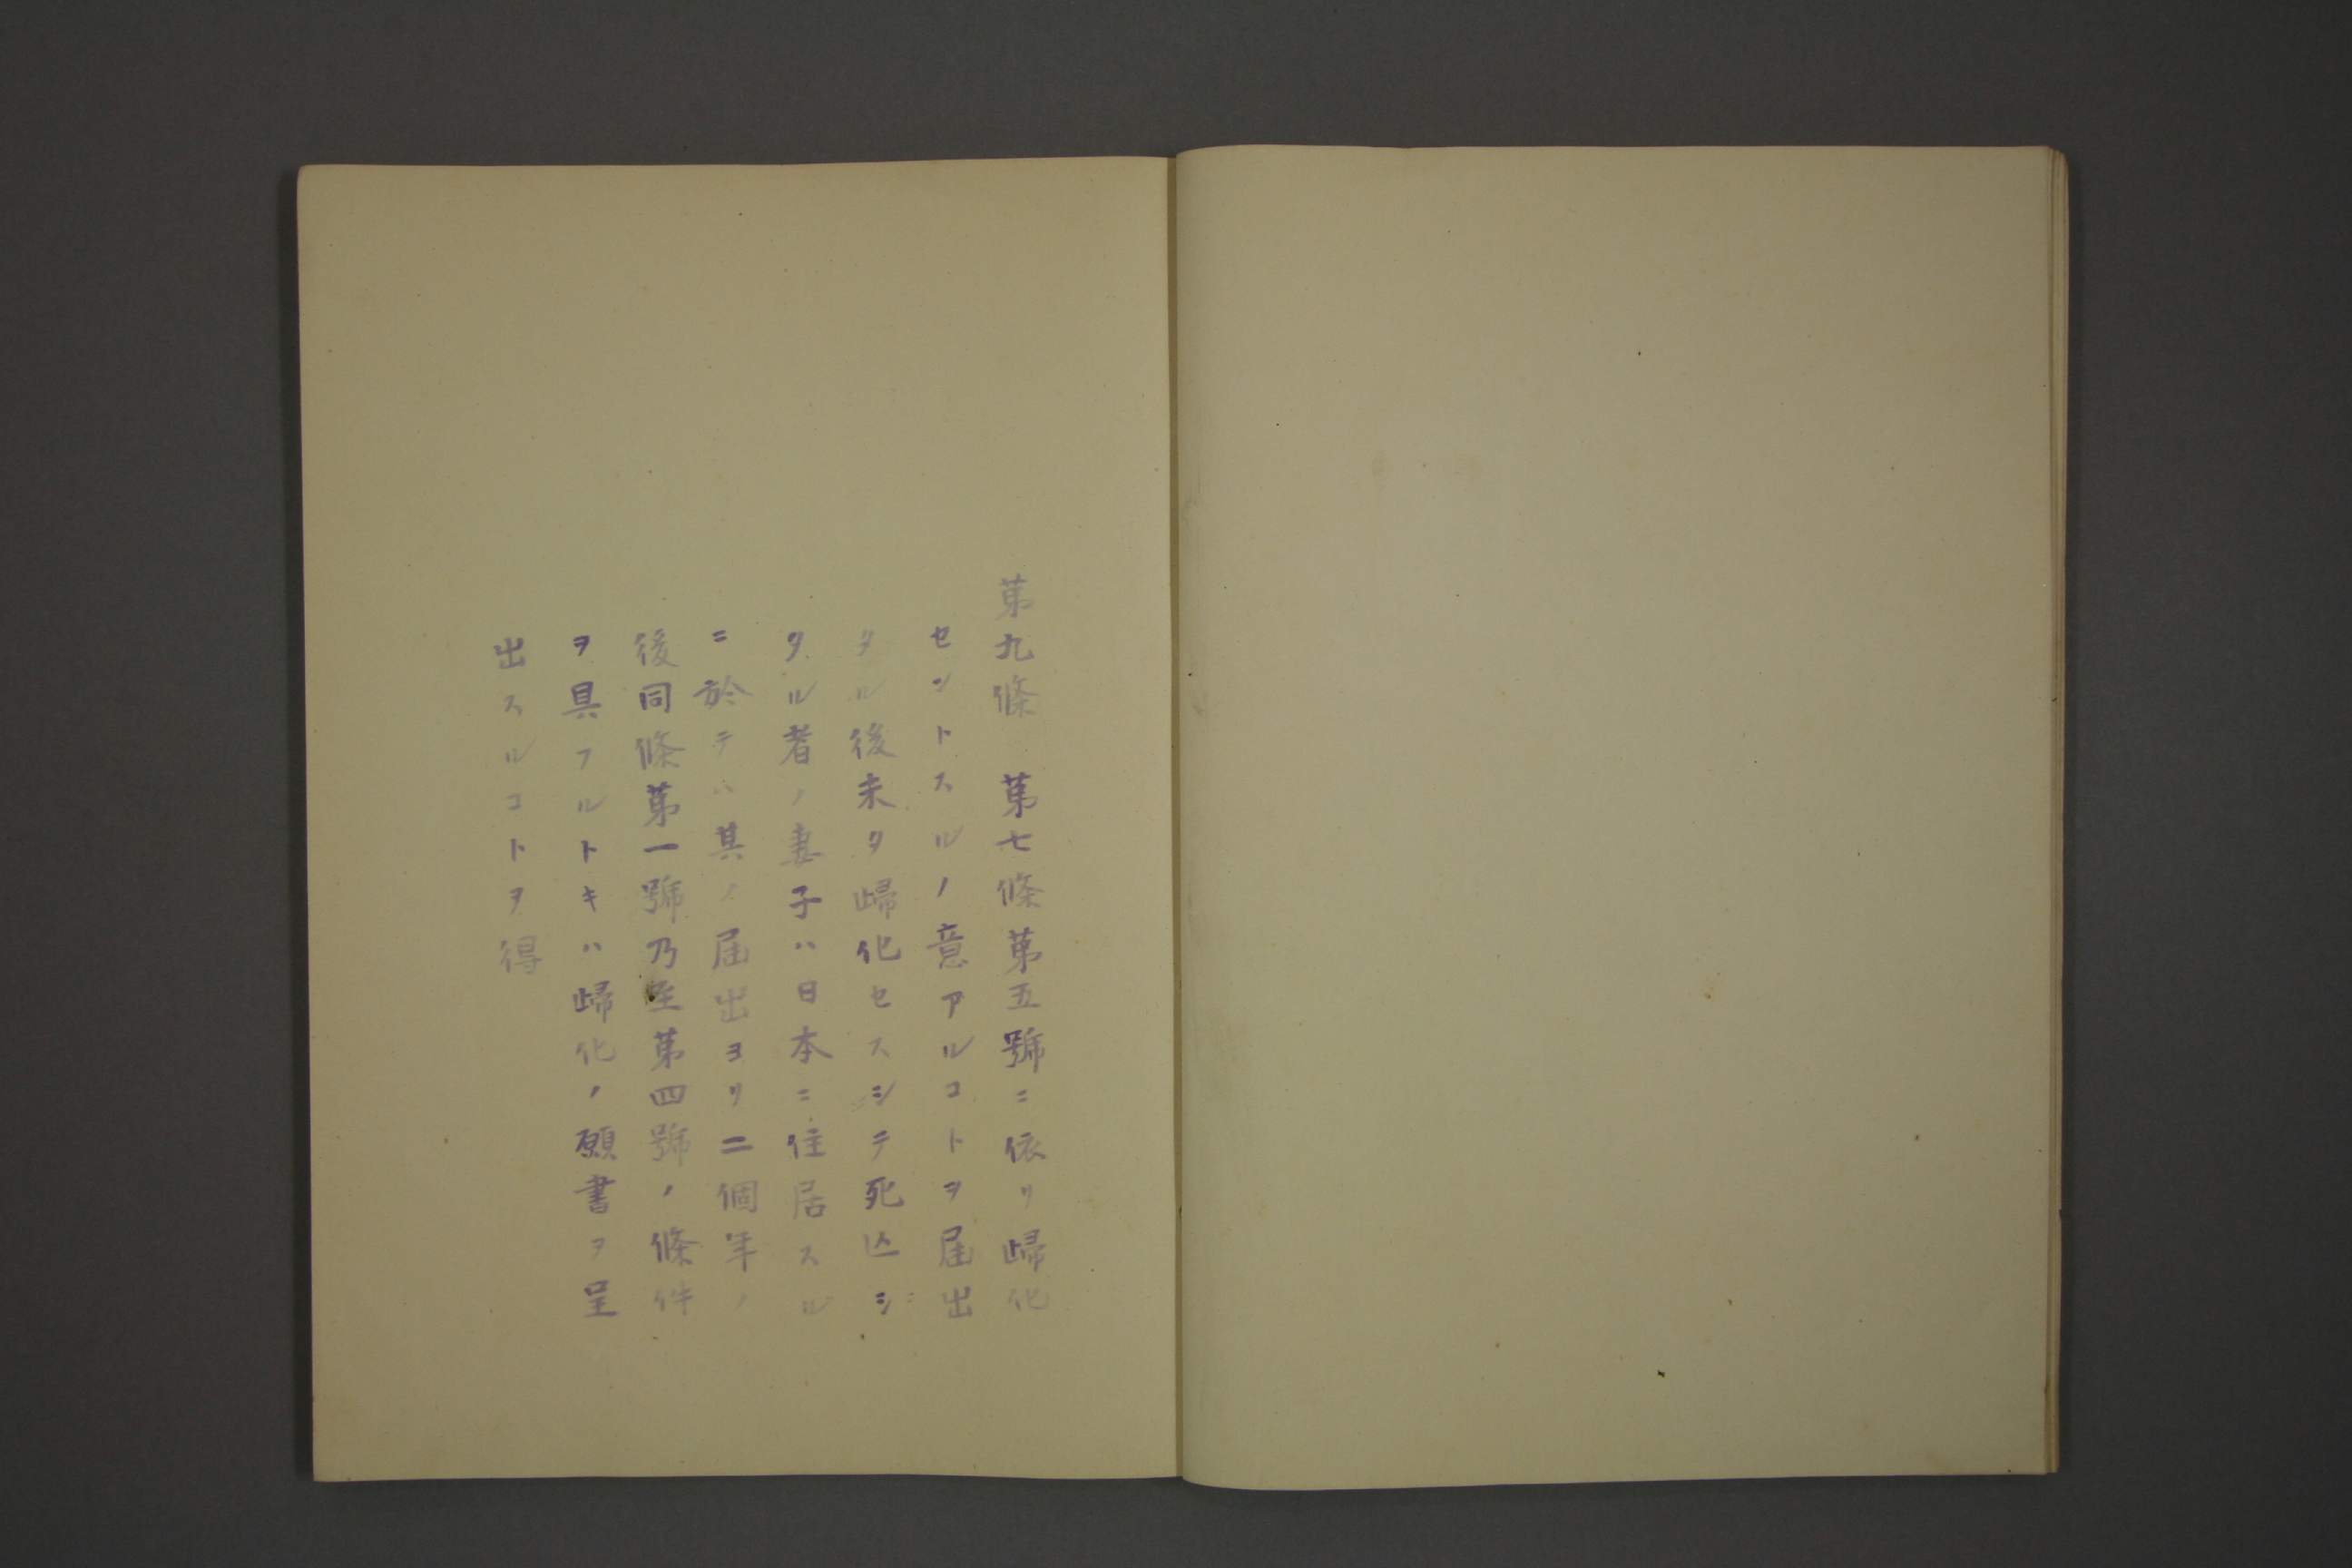 第九條　第七條第五號ニ依リ歸化
セントスルノ意アルコトヲ届出
タル後未タ歸化セスシテ死亡シ
タル者ノ妻子ハ日本ニ住居スル
ニ於テハ其ノ届出ヨリ二個年ノ
後同條第一號乃至第四號ノ條件
ヲ具フルトキハ歸化ノ願書ヲ呈
出スルコトヲ得